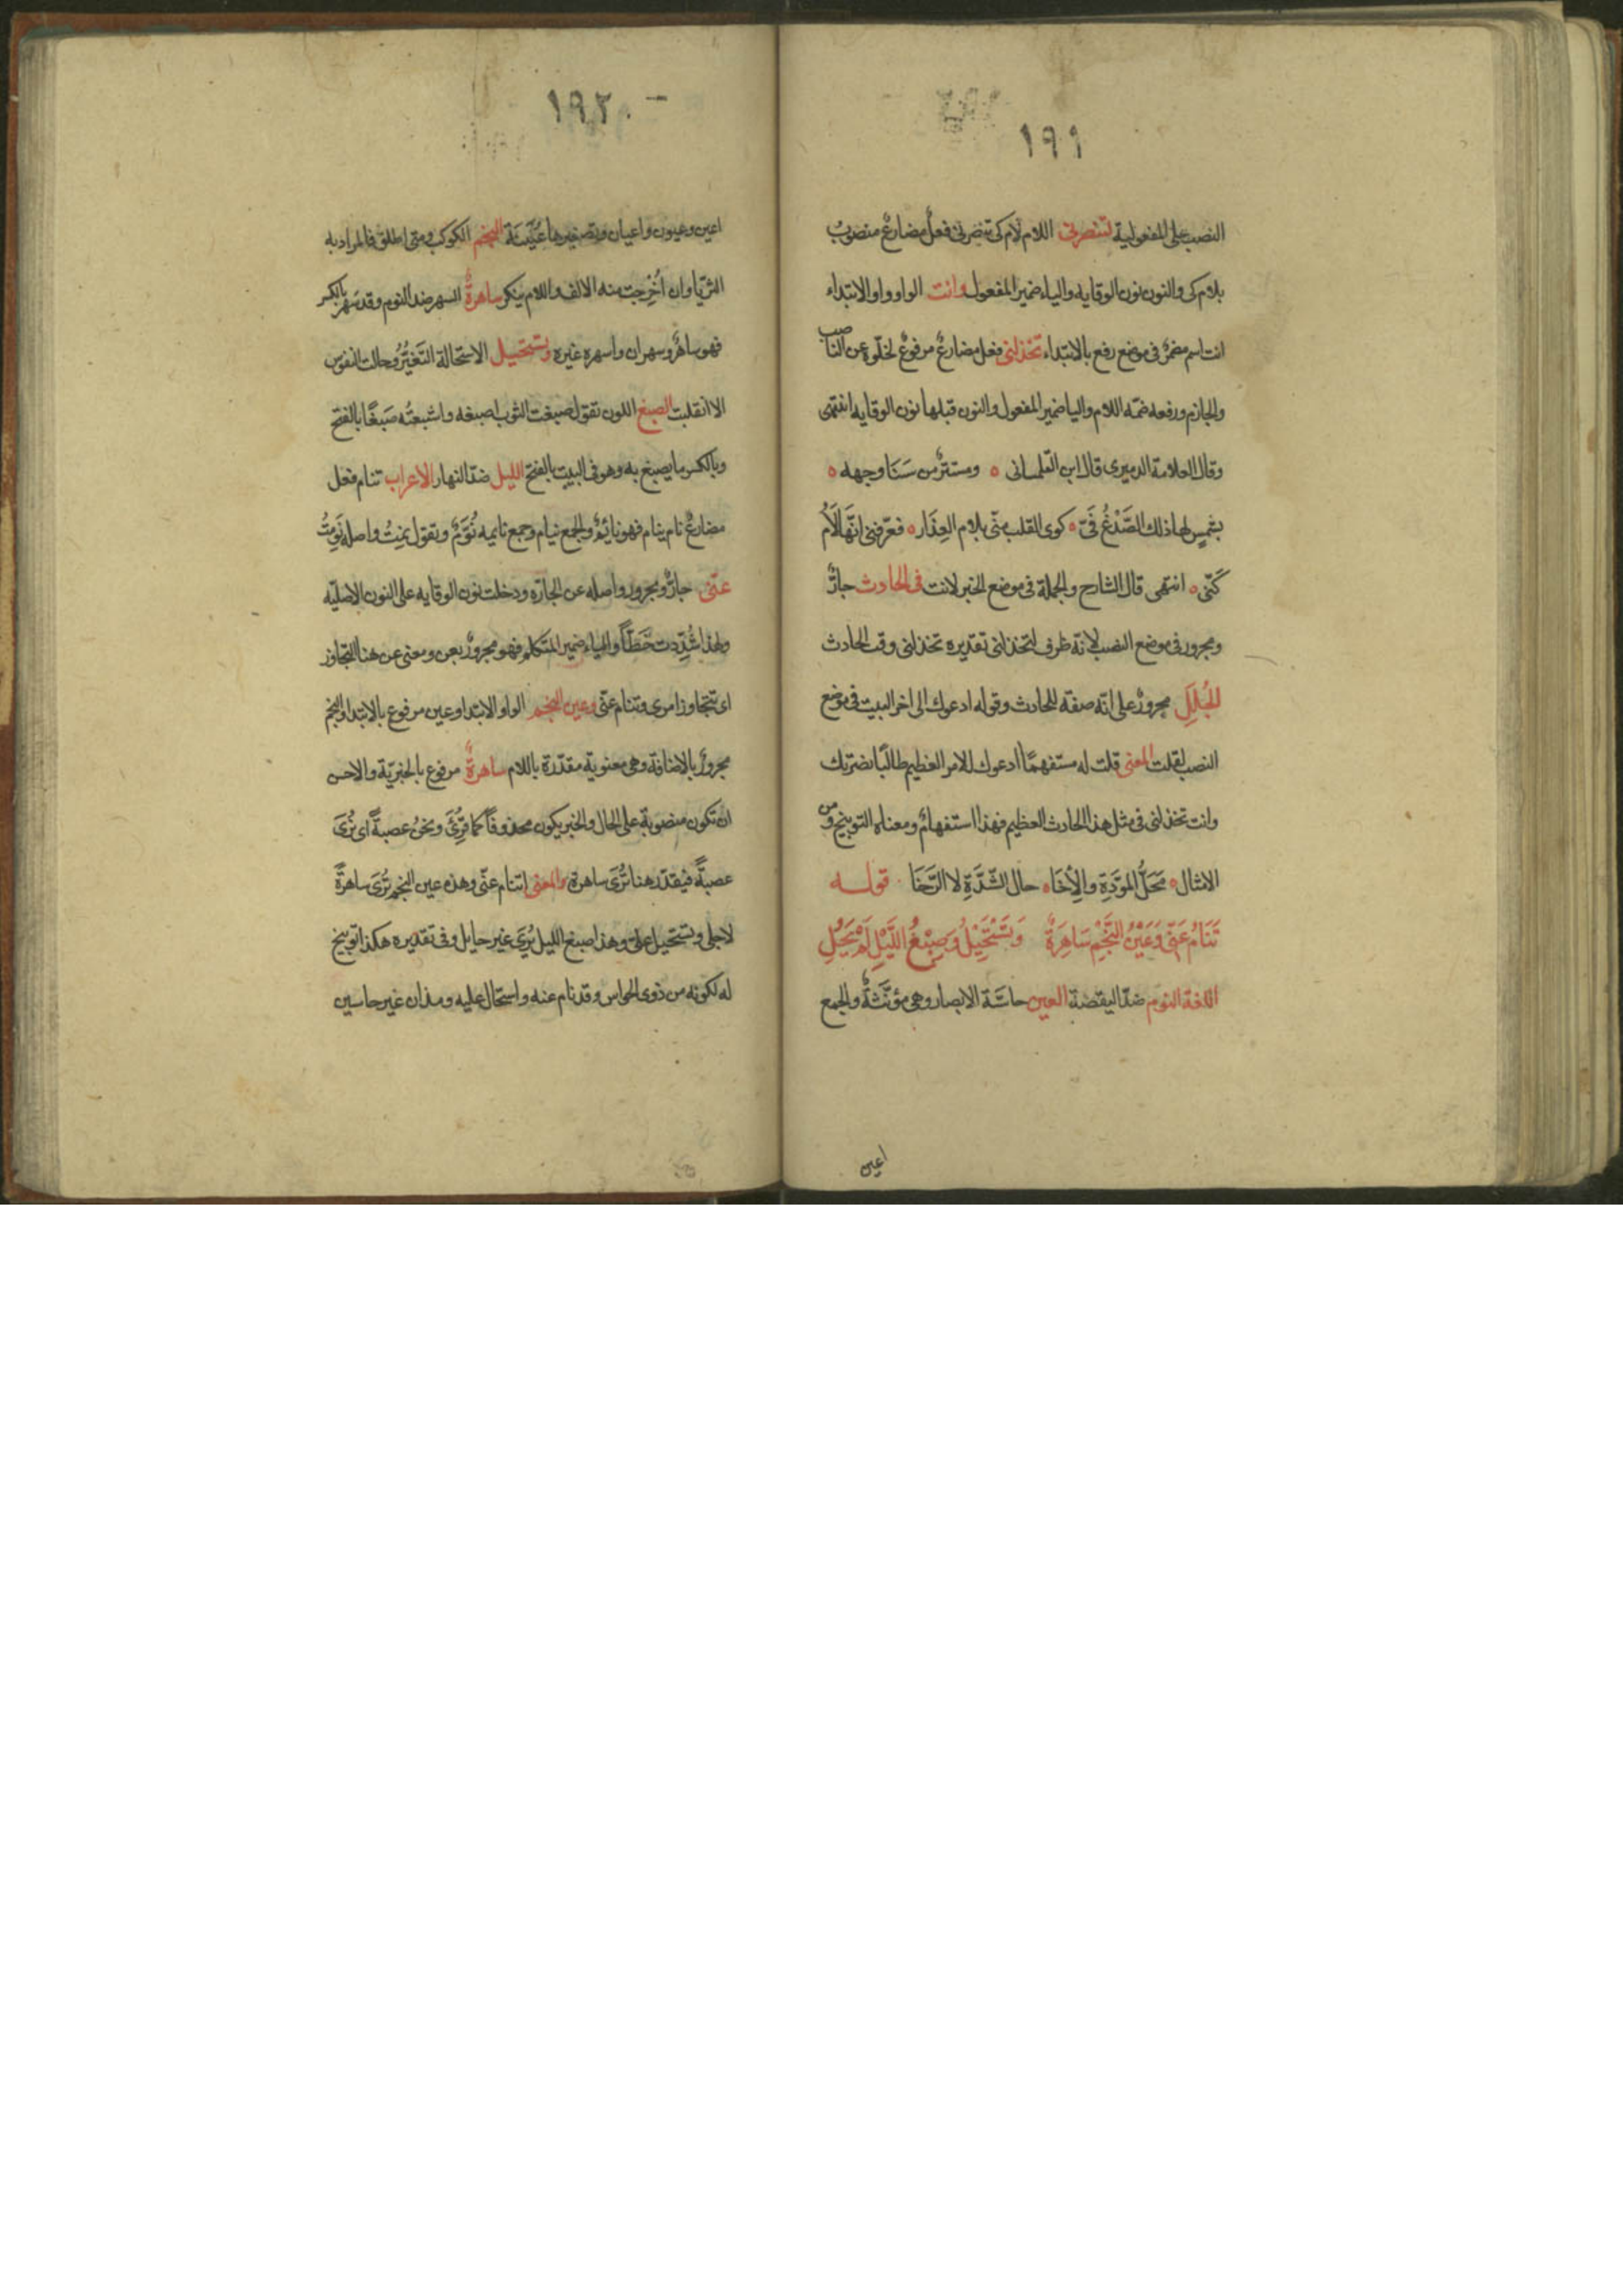 ١٩١
النصب على المفعولية لتنصرنى اللام لام كى تنصرنى فعل مضارعٌ منصوبٌ
بلام كى والنون نون الوقايه والياء ضمير المفعول وانت الواو واو الابتداء
انت اسم مضمرٌ فى موضع رفع بالابتداء تخذلنى فعل مضارعٌ مرفوعٌ لخلّوه عن الناصب
والجازم ورفعه ضمّه اللام واليا ضمير المفعول والنون قبلها نون الوقايه انتهى
وقال العلامة الدميرى قال ابن التلمسانى ه ومستترٌ من سَنَا وجهه ه
بشمسٍ لها ذلك الصَّدْغُ فَىّ ه كوى القلب منّى بلام العِذَار ه فعرّفنى انّها لَامُ
كَىّ ه انتهى قال الشارح والجملة فى موضع الخبر لانت فى الحادث جارٌّ
ومجرور فى موضع النصب لانه ظرف لتخذلنى تقديره تخذلنى وقت الحادث
الجُلَلِ مجرورٌ على انّه صفة للحادث وقوله ادعوك الى اخر البيت فى موضع
النصب لقلت المعنى قلت له مستفهمًا أدعوك للامر العظيم طالبًا نصرتك
وانت تخذلنى فى مثل هذا الحادث العظيم فهذا استفهامٌ ومعناه التوبيخ ومن
الامثال ه مَحَلُّ المَوَدَّةِ والْاِخَاء ه حال الشّدَّةِ لا الرَّخَا قوله
تَنَامُ عَنّى وَعَيْنُ النَّجْمِ سَاهِرَةٌ وَتَسْتَحِيْلُ وَصِبْغُ اللَّيْلِ لَمْ يَحُلِ
اللغة النوم ضدّ اليقضة العين حاسّة الابصار وهى مؤنّثةٌ والجمع
اعين
١٩٢
اعين وعيون واعيان وتصغيرها عُيَيْنَة النجم الكوكب ومتى اطلق فالمراد به
الثريّا وان اُخْرِجت منه الالف واللام ينكر ساهرةٌ السهر ضد النوم وقد سَهِر بالكسر
فهو ساهرٌ وسهران واسهره غيره وتستحيل الاستحالة التَّغَيُّرُ وحالت النفوس
الا انقلبت الصبغ اللون تقول صبغت الثوب اصبغه واشبعتُه صَبغًا بالفتح
وبالكسر ما يصبغ به وهو فى البيت بالفتح الليل ضدّ النهار الاعراب تنام فعل
مضارعٌ نام ينام فهو نايمٌ والجمع نيام وجمع نايمه نُوَّمٌ وتقول نِمِتُ واصله نَوِمتُ
عنّى جارٌّ ومجرور واصله عن الجارّه ودخلت نون الوقايه على النون الاصليّه
ولهذا شُدِّدت خَطًّا والياء ضمير المتكلم فهو مجرورٌ بعن ومعنى عن هنا التجاوز
اى تتجاوز امرى وتنام عنّى وعين النجم الواو للابتدا وعين مرفوع بالابتدا والنجم
مجرورٌ بالاضافة وهى معنوية مقدّرة باللام ساهرةٌ مرفوع بالخبريّة والاحسن
ان تكون منصوبة على الحال والخبر يكون محذوفاً كما قُرِئَ ونحنُ عصبةً اى نُرَىَ
عصبةً فيقدّر هنا تُرَىَ ساهرة والمعنى اتنام عنّى وهذه عين النجم تُرَى ساهرةً
لاجلى وتستحيل علىّ وهذا صبغ الليل يُرَى غير حايل وفى تقديره هكذا توبيخ
له لكونه من ذوى الحواس وقد نام عنه واستحال عليه وهذان غير حاسين